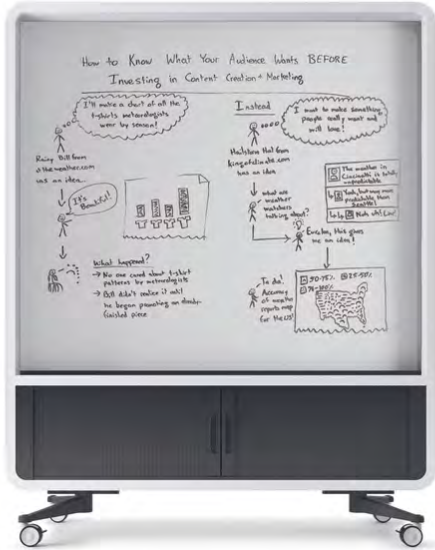 How to Know What Your Audience Wants BEFORE
Investing in Content Creation + Marketing
I'll make a chart of all the
t-shirts meteorologists
wear by season!
Rainy Bill from
has an idea...
It's
Beautiful!
What happened?
→ No one cared about t-shirt
patterns by meteorologists
→ Bill didn't realize it until
he began promoting an already-
finished piece
Instead
I want to make something
people really want and
will love!
Hailstone Hal from
kingofclimate.com
has an idea
what are
weather
watchers
talking about?
The weather in
Cincinnati is totally
unpredictable
Yeah, but way more
predictable than
Seattle!
Nuh uh!
Eureka, this gives
me an idea!
To do:
Accuracy
of weather
reports map
for the US!
50-75%
25-50%